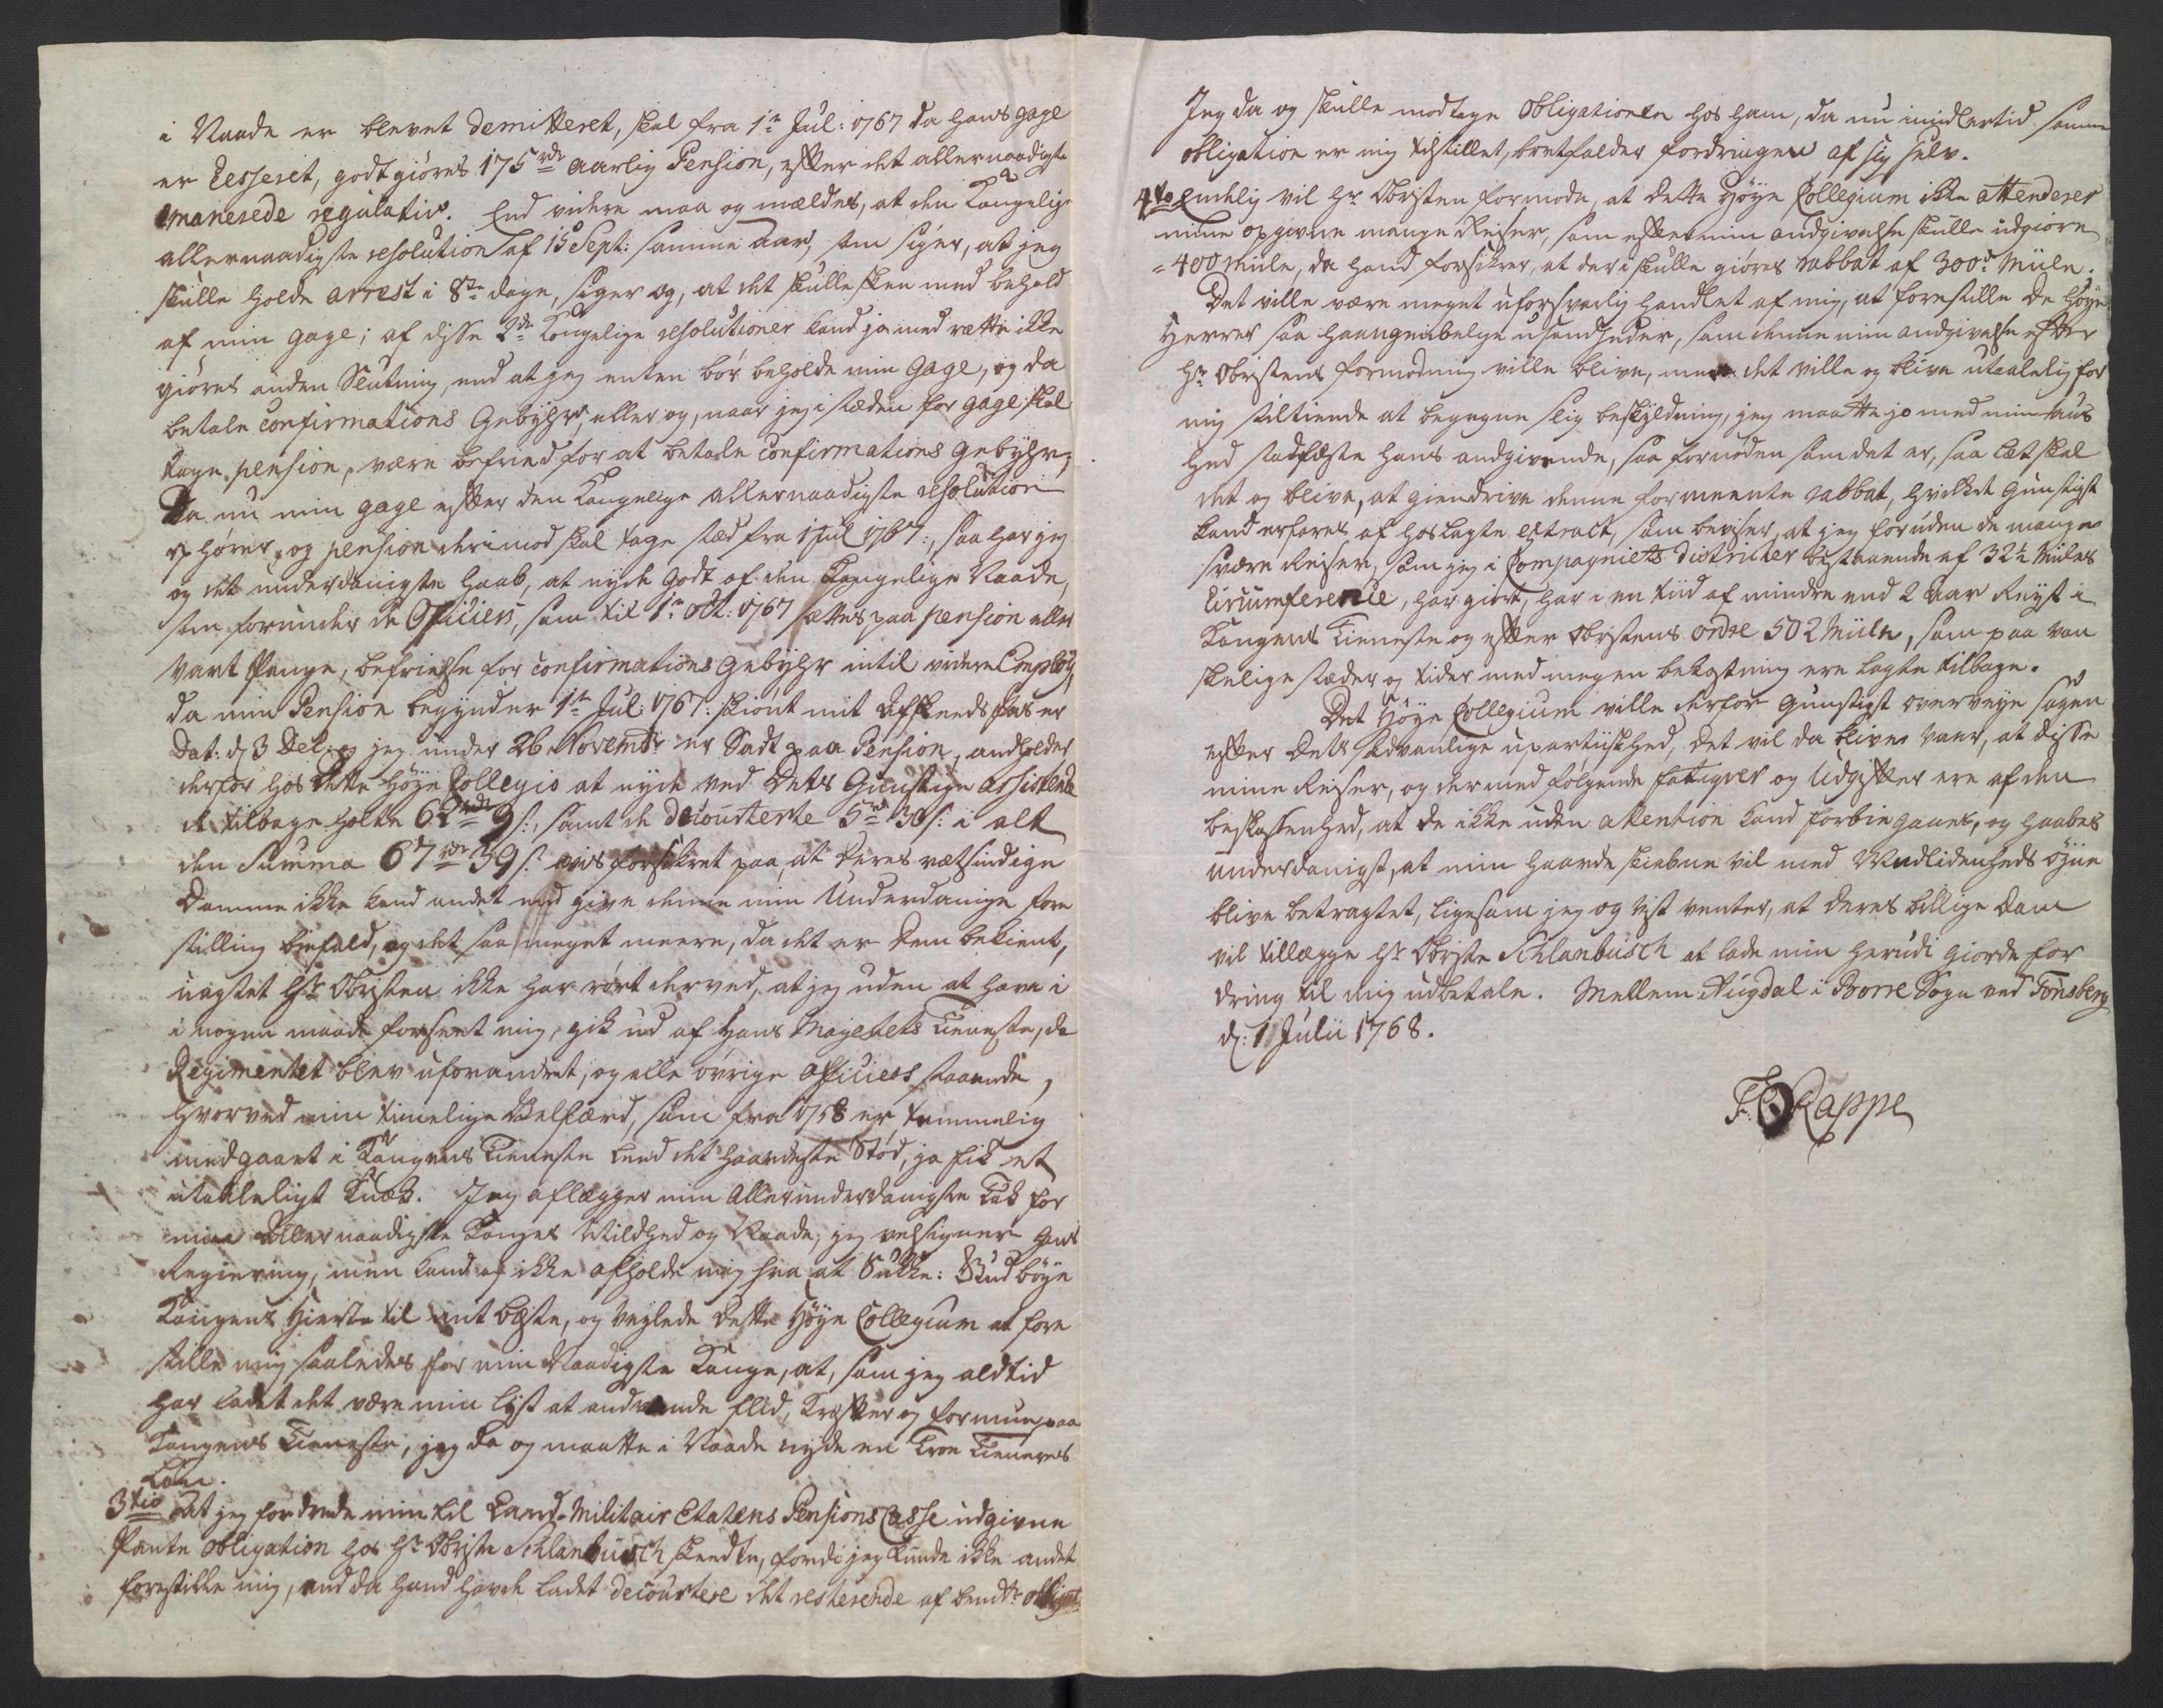 i Naade er blevet demitteret, skal fra 1te Jul: 1767 da hans gage
er Cesseret, godtgiöres 175 rdr aarlig Pension, efter det allernaadigste
emanerede regulativ. End videre maa og mældes, at den Kongelig
allernaadigste resolution af 15 Sept: samme aar, som siger, at jeg
skulle holde arrest i 8te dage, siger og, at det skulle skee med behold
af min gage; af disse 2de Kongelige resolutioner kand jo med rætte ikke
giöres anden Slutning, end at jeg enten bör beholde min gage, og da
betale confirmations Gebyhr, eller og, naar jeg i stæden for gage skal
tage pension, være befried for at betale confirmations gebyhr;
Da nu min gage efter den Kongelige allernaadigste resolution
ophörer, og pension derimod skal tage stæd fra 1 Jul 1767:, saa har jeg
og det underdanigste Haab, at nyde godt af den Kongelige Naade,
som forunder de Officiers, som til 1te Oct: 1767 sættes paa pension eller
Vart Penge, befrielse for confirmations Gebyhr intil videre Employ,
da min Pension begynder 1te Jul: 1767: skiönt mit Afskeeds Pas er
Dat: d: 3 Dec: og jeg under 26 Novembr er Sadt paa Pension, andholder
derfor hos dette Höye Collegio at nyde ved Dets Gunstige assistence
de tilbageholdte 62 rdr 9 s:, samt de decourterte 5 rd 30 s: i alt
den Summa 67 rdr 39 s: vis forsikret paa, at Deres rætsindige
Domme ikke kand andet end give denne min Underdanige fore
stilling biefald, og det saa meget meere, da det er dem bekient,
uagtet Hr Obristen ikke har rört derved, at jeg uden at have i
i nogen maade forseet mig, gik ud af Hans Mayestets Tieneste, da
Regimentet blev uforandret, og alle övrige Officiers staaende,
hvorved min timelige Velfærd, som fra 1758 er temmelig
medgaaet i Kongens Tieneste leed det haardeste Stöd, ja fik et
utaaleligt Knæk. Jeg aflægger min Allerunderdanigste Tak for
min Allernaadigste Konges Mildhed og Naade, jeg velsigner Hans
Regiering, men kand og ikke afholde mig fra at Sukke: Gud böye
Kongens Hierte til mit beste, og veylede dette Höye Collegium at fore
stille mig saaledes for min Naadigste Konge, at, som jeg altid
har ladet det være min lyst at andvende flid, Kræfter og formue paa
Kongens Tieneste, jeg da og maatte i Naade nyde en Troe Tieneres
Lön.
3tio At jeg fordrede min til Land-Militair Etatens Pensions Casse udgivne
Pante Obligation hos Hr Obriste Schlanbusch skeedte, fordi jeg kunde ikke andet
forestille mig, end da Hand havde ladet decourtere det resterende af bemte obligat
Jeg da og skulle modtage Obligationen hos ham, da nu imidlertid samme
obligation er mig tilstillet, bortfalder fordringen af sig selv.
4to Endelig vil Hr Obristen formode, at dette Höye Collegium ikke attenderer
mine opgivne mange Reiser, som efter min andgivelse skulle udgiöre
400 Miile, da Hand forsikrer, at der i skulle giöres rabbat af 300de Miile.
Det ville være meget uforsvarlig handlet af mig, at forestille de Höye
Herrer saa Haandgribelige usandheder, som denne min andgivelse efter
Hr Obristens formodning ville blive, men det ville og blive utaalelig for
mig stiltiende at begegne slig beskyldning, jeg maatte jo med min taus
hed stadfæste Hans andgivende, saa fornöden som det er, saa let skal
det og blive, at giendrive denne formeente rabbat, hvilket gunstigst
kand erfares af hoslagte extract, som beviser, at jeg foruden de mange
svære Reiser, som jeg i Compagniets Districter bestaaende af 32½ Miiles
Circumference, har giort, har i en tiid af mindre end 2 Aar Reyst i
Kongens Tieneste og efter Obristens ordre 502 Miile, som paa van
skelige stæder og tider med megen bekostning ere lagte tilbage.
Det Höye Collegium ville derfor gunstigst overveye sagen
efter Dets sædvanlige upartiiskhed, det vil da blive vaer, at disse
mine Reiser, og dermed fölgende fatiguer og Udgifter ere af den
beskaffenhed, at de ikke uden attention kand forbiegaaes, og haabes
underdanigst, at min haarde skiebne vil med Medlidenheds öyne
blive betragtet, ligesom jeg og vist venter, at deres billige dom
vil tillægge Hr Obriste Schlanbusch at lade min herudi giorde for
dring til mig udbetale. Mellem Augdal i Borre Sogn ved Tönsberg
d: 1 Julii 1768.
F: C Rappe